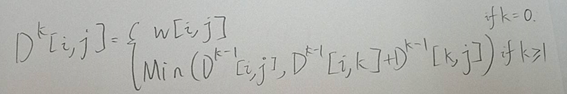 D^k[i,j] = { w[i,j] if k=0.
Min(D^{k-1}[i,j], D^{k-1}[i,k]+D^{k-1}[k,j]) if k≥1